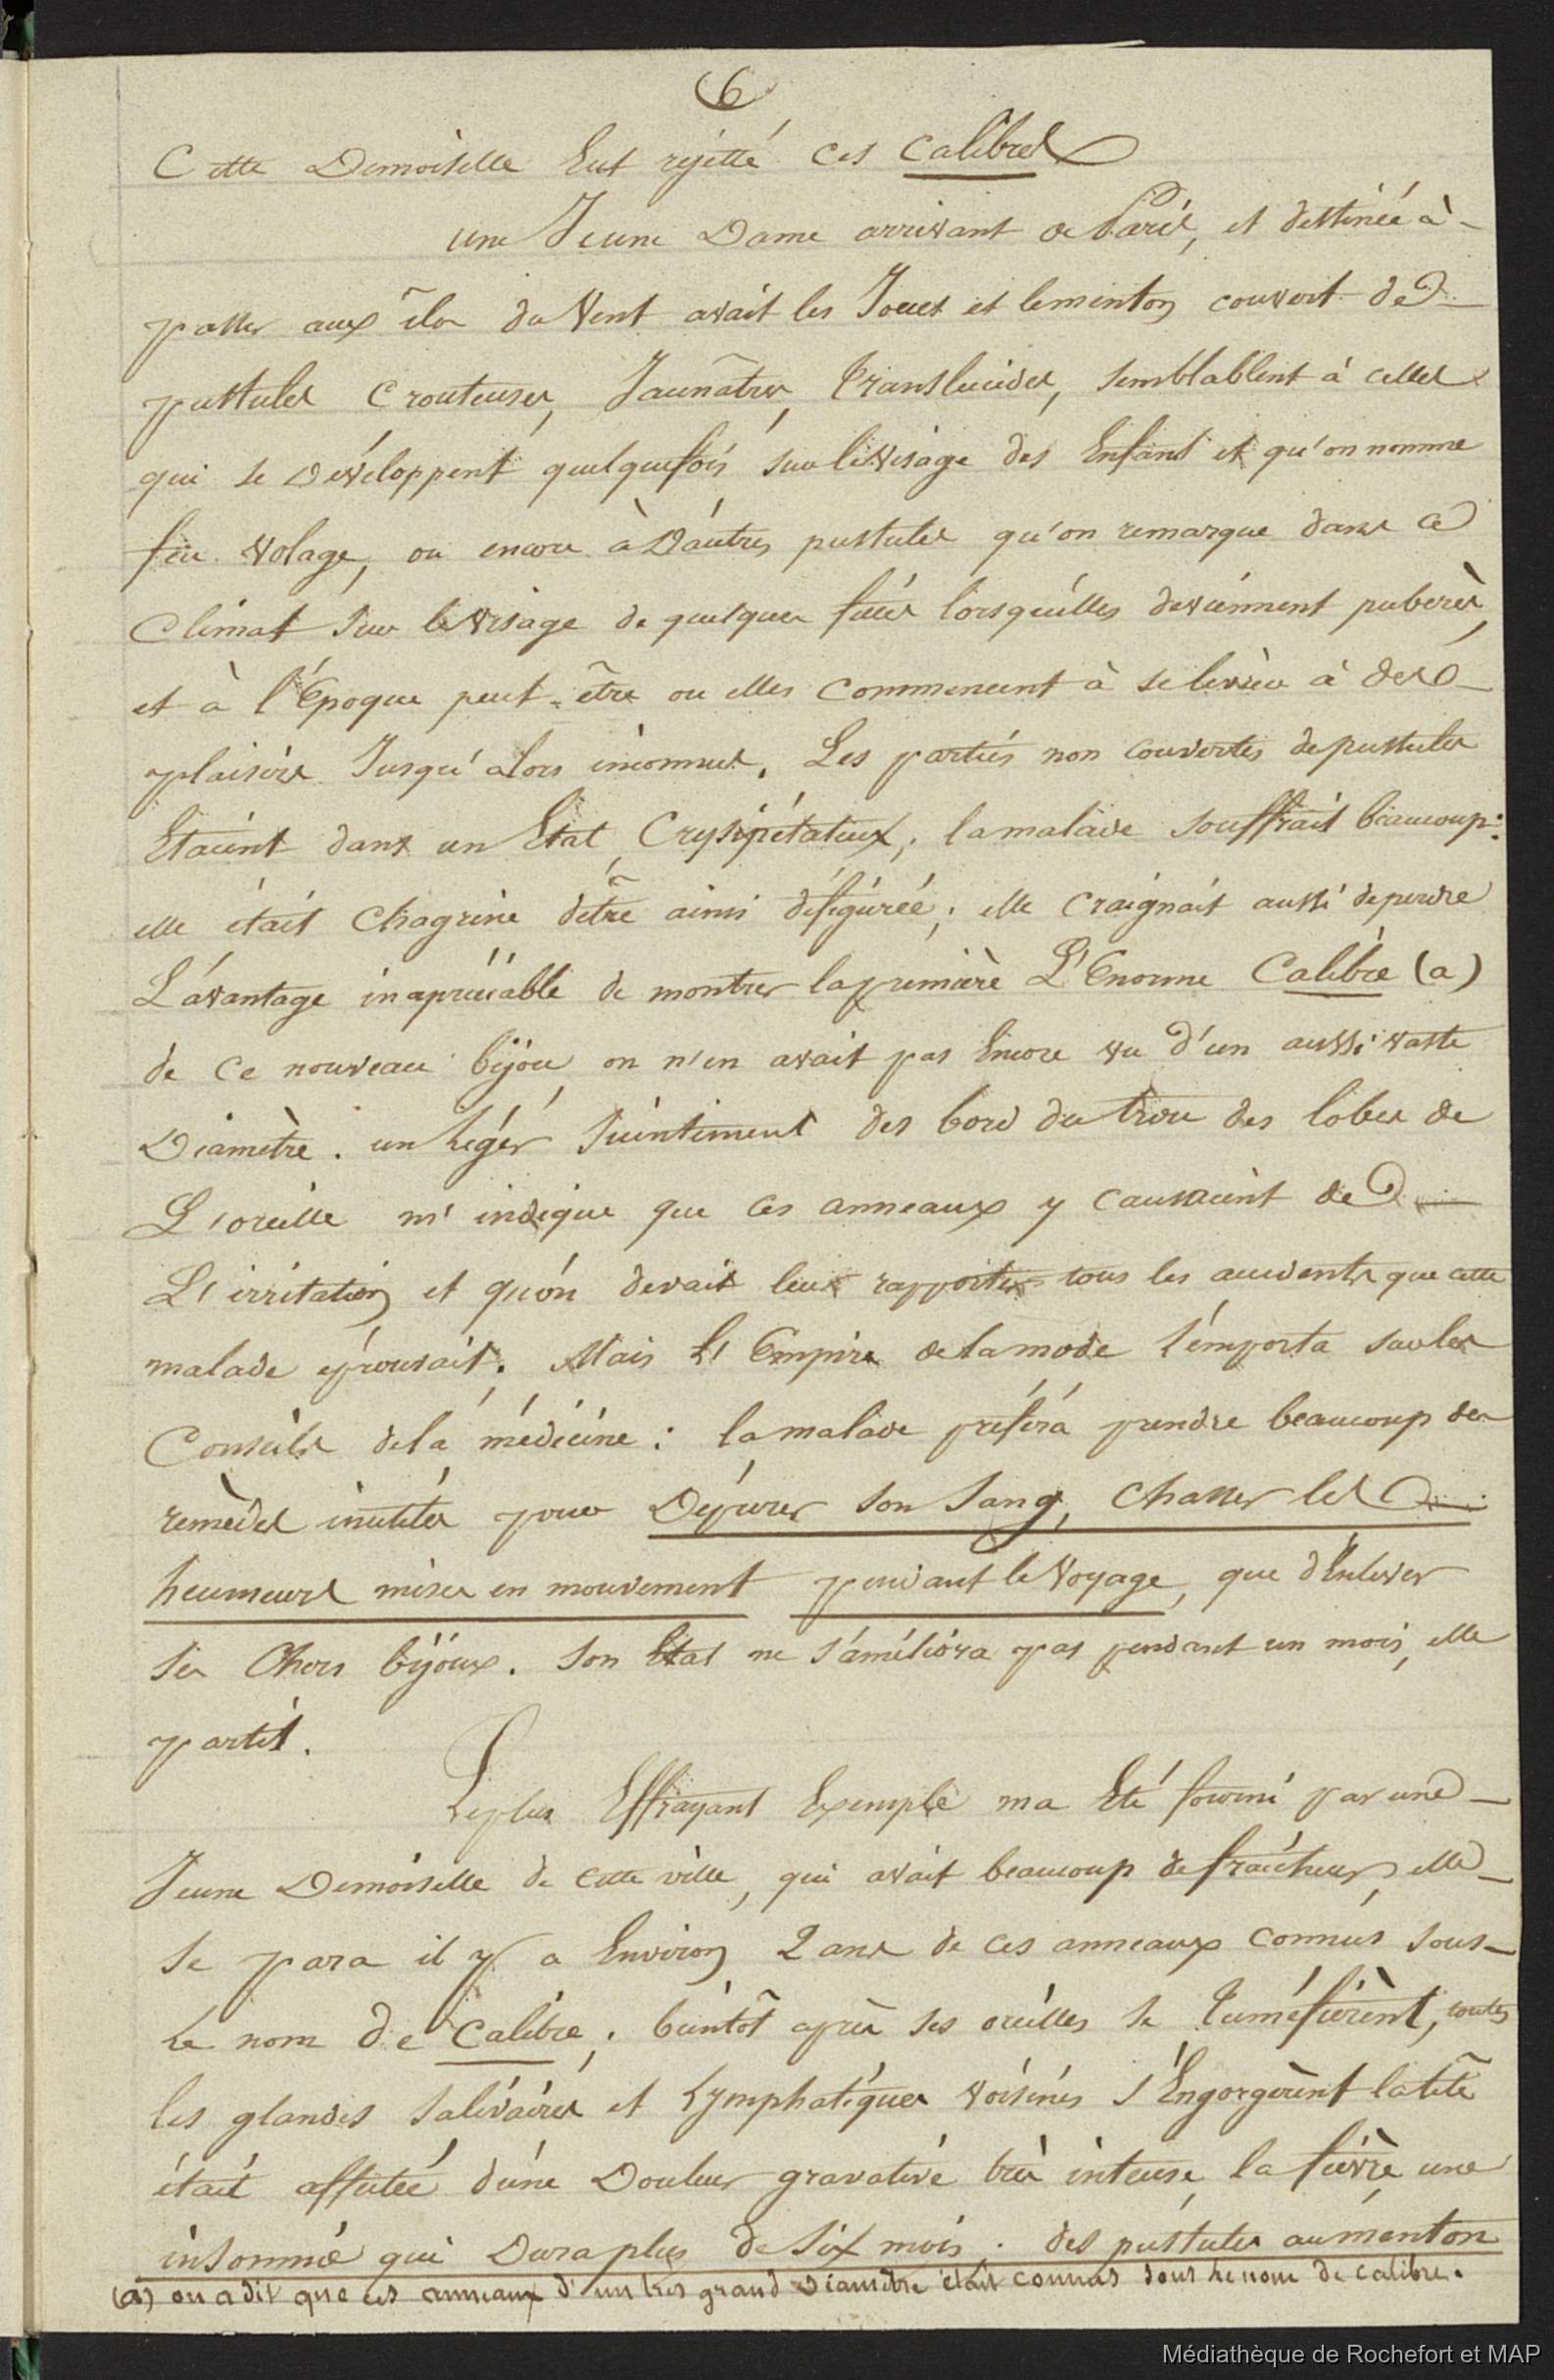 6
Cette Demoiselle Eut rejetté ces calibres
une Jeune Dame arrivant de Paris, et destinée à -
passer aux îles du Vent avait les Joues et le menton couvert de -
pustules crouteuses, Jaunâtres, translucides, semblablent à celles
qui se développent quelquefois sur le visage des Enfans et qu'on nomme
feu volage, ou encore à D'autres pustules qu'on remarque dans ce
Climat sur le visage de quelques filles lorsqu'elles deviennent puberes,
et à l'Epoque peut-être ou elles commencent à se livrer à des -
plaisirs Jusqu'alors inconnus. Les parties non couvertes de pustules
Etaient dans un Etat Erysipélateux, la malade souffrait beaucoup:
elle était chagrine d'être ainsi défigurée; elle craignait aussi de perdre
L'avantage inapréciable de montrer la première L'Enorme Calibre (a)
de ce nouveau bijou, on n'en avait pas Encore vu d'un aussi vaste
Diamètre. un Léger suintement des bord du trou des lobes de
L'oreille m'indique que ces anneaux y causaient de -
L'irritation et qu'on devait leur rapporter tous les accidents que cette
malade éprouvait. Mais L'Empire de la mode l'emporta sur les
Conseils de la médécine: la malade préféra prendre beaucoup de
remèdes inutiles pour Dépurer son Sang, chasser les -
heumeurs mises en mouvement pendant le Voyage, que d'Enlever
ses Chers bijoux. Son Etat ne s'améliora pas pendant un mois, elle
partit.
Le plus Effrayant Exemple m'a Eté fourni par une -
Jeune Demoiselle de cette ville, qui avait beaucoup de fraîcheur, elle -
se para il y a Environ 2 ans de ces anneaux connus sous -
Le nom de Calibre; bientôt après ses oreilles se tuméfièrent, toutes
les glandes salivaires et Lymphatiques voisines s'Engorgèrent la tête
était affectée d'une Douleur gravative très intense, la fièvre, une
insomnie qui Dura plus de Six mois. des pustules au menton
(a) on a dit que ces anneaux d'un très grand Diamètre était connus sous le nom de calibre.
Médiathèque de Rochefort et MAP